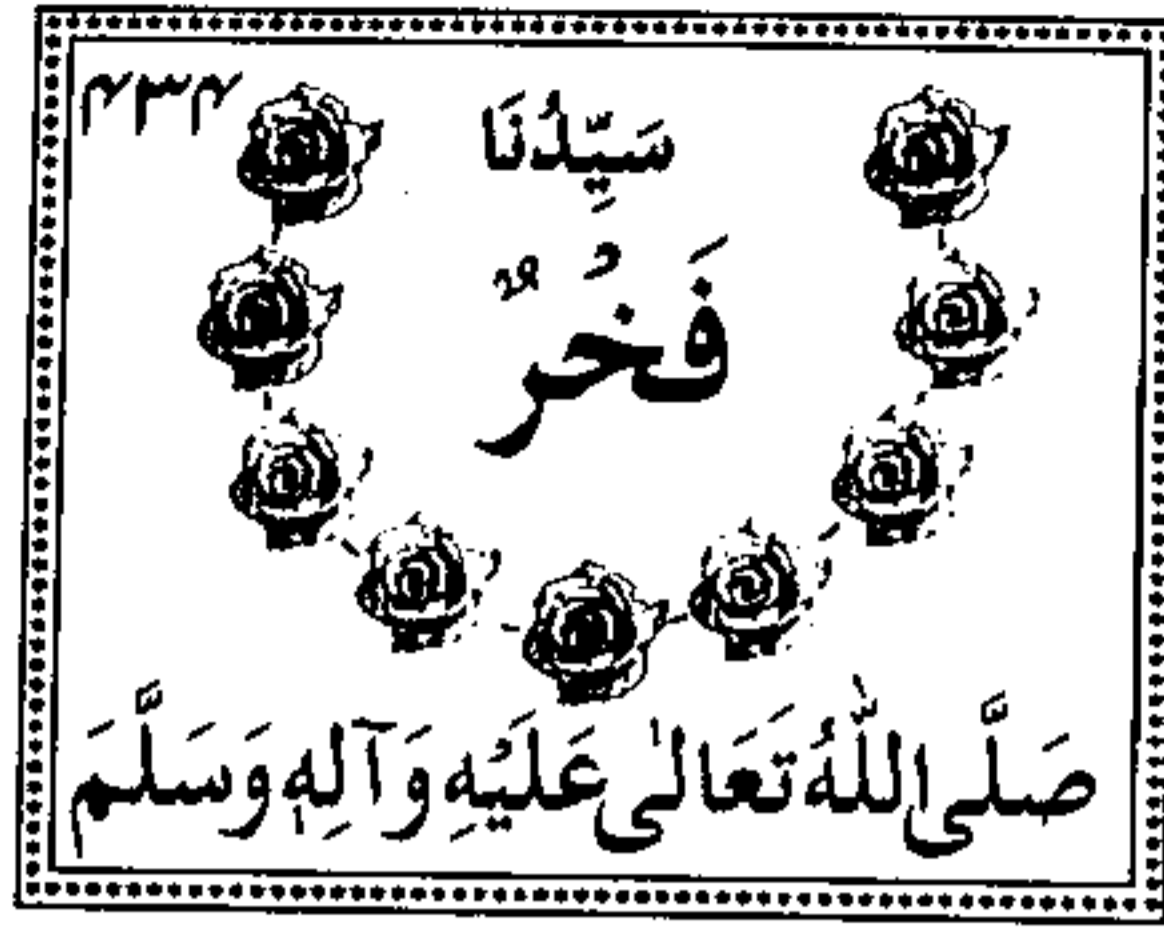 ۴۳۴
سَيِّدُنَا
فَخُرٌ
صَلَّى اللّٰهُ تَعَالٰى عَلَيُهِ وَآلِهٖ وَسَلَّمَ